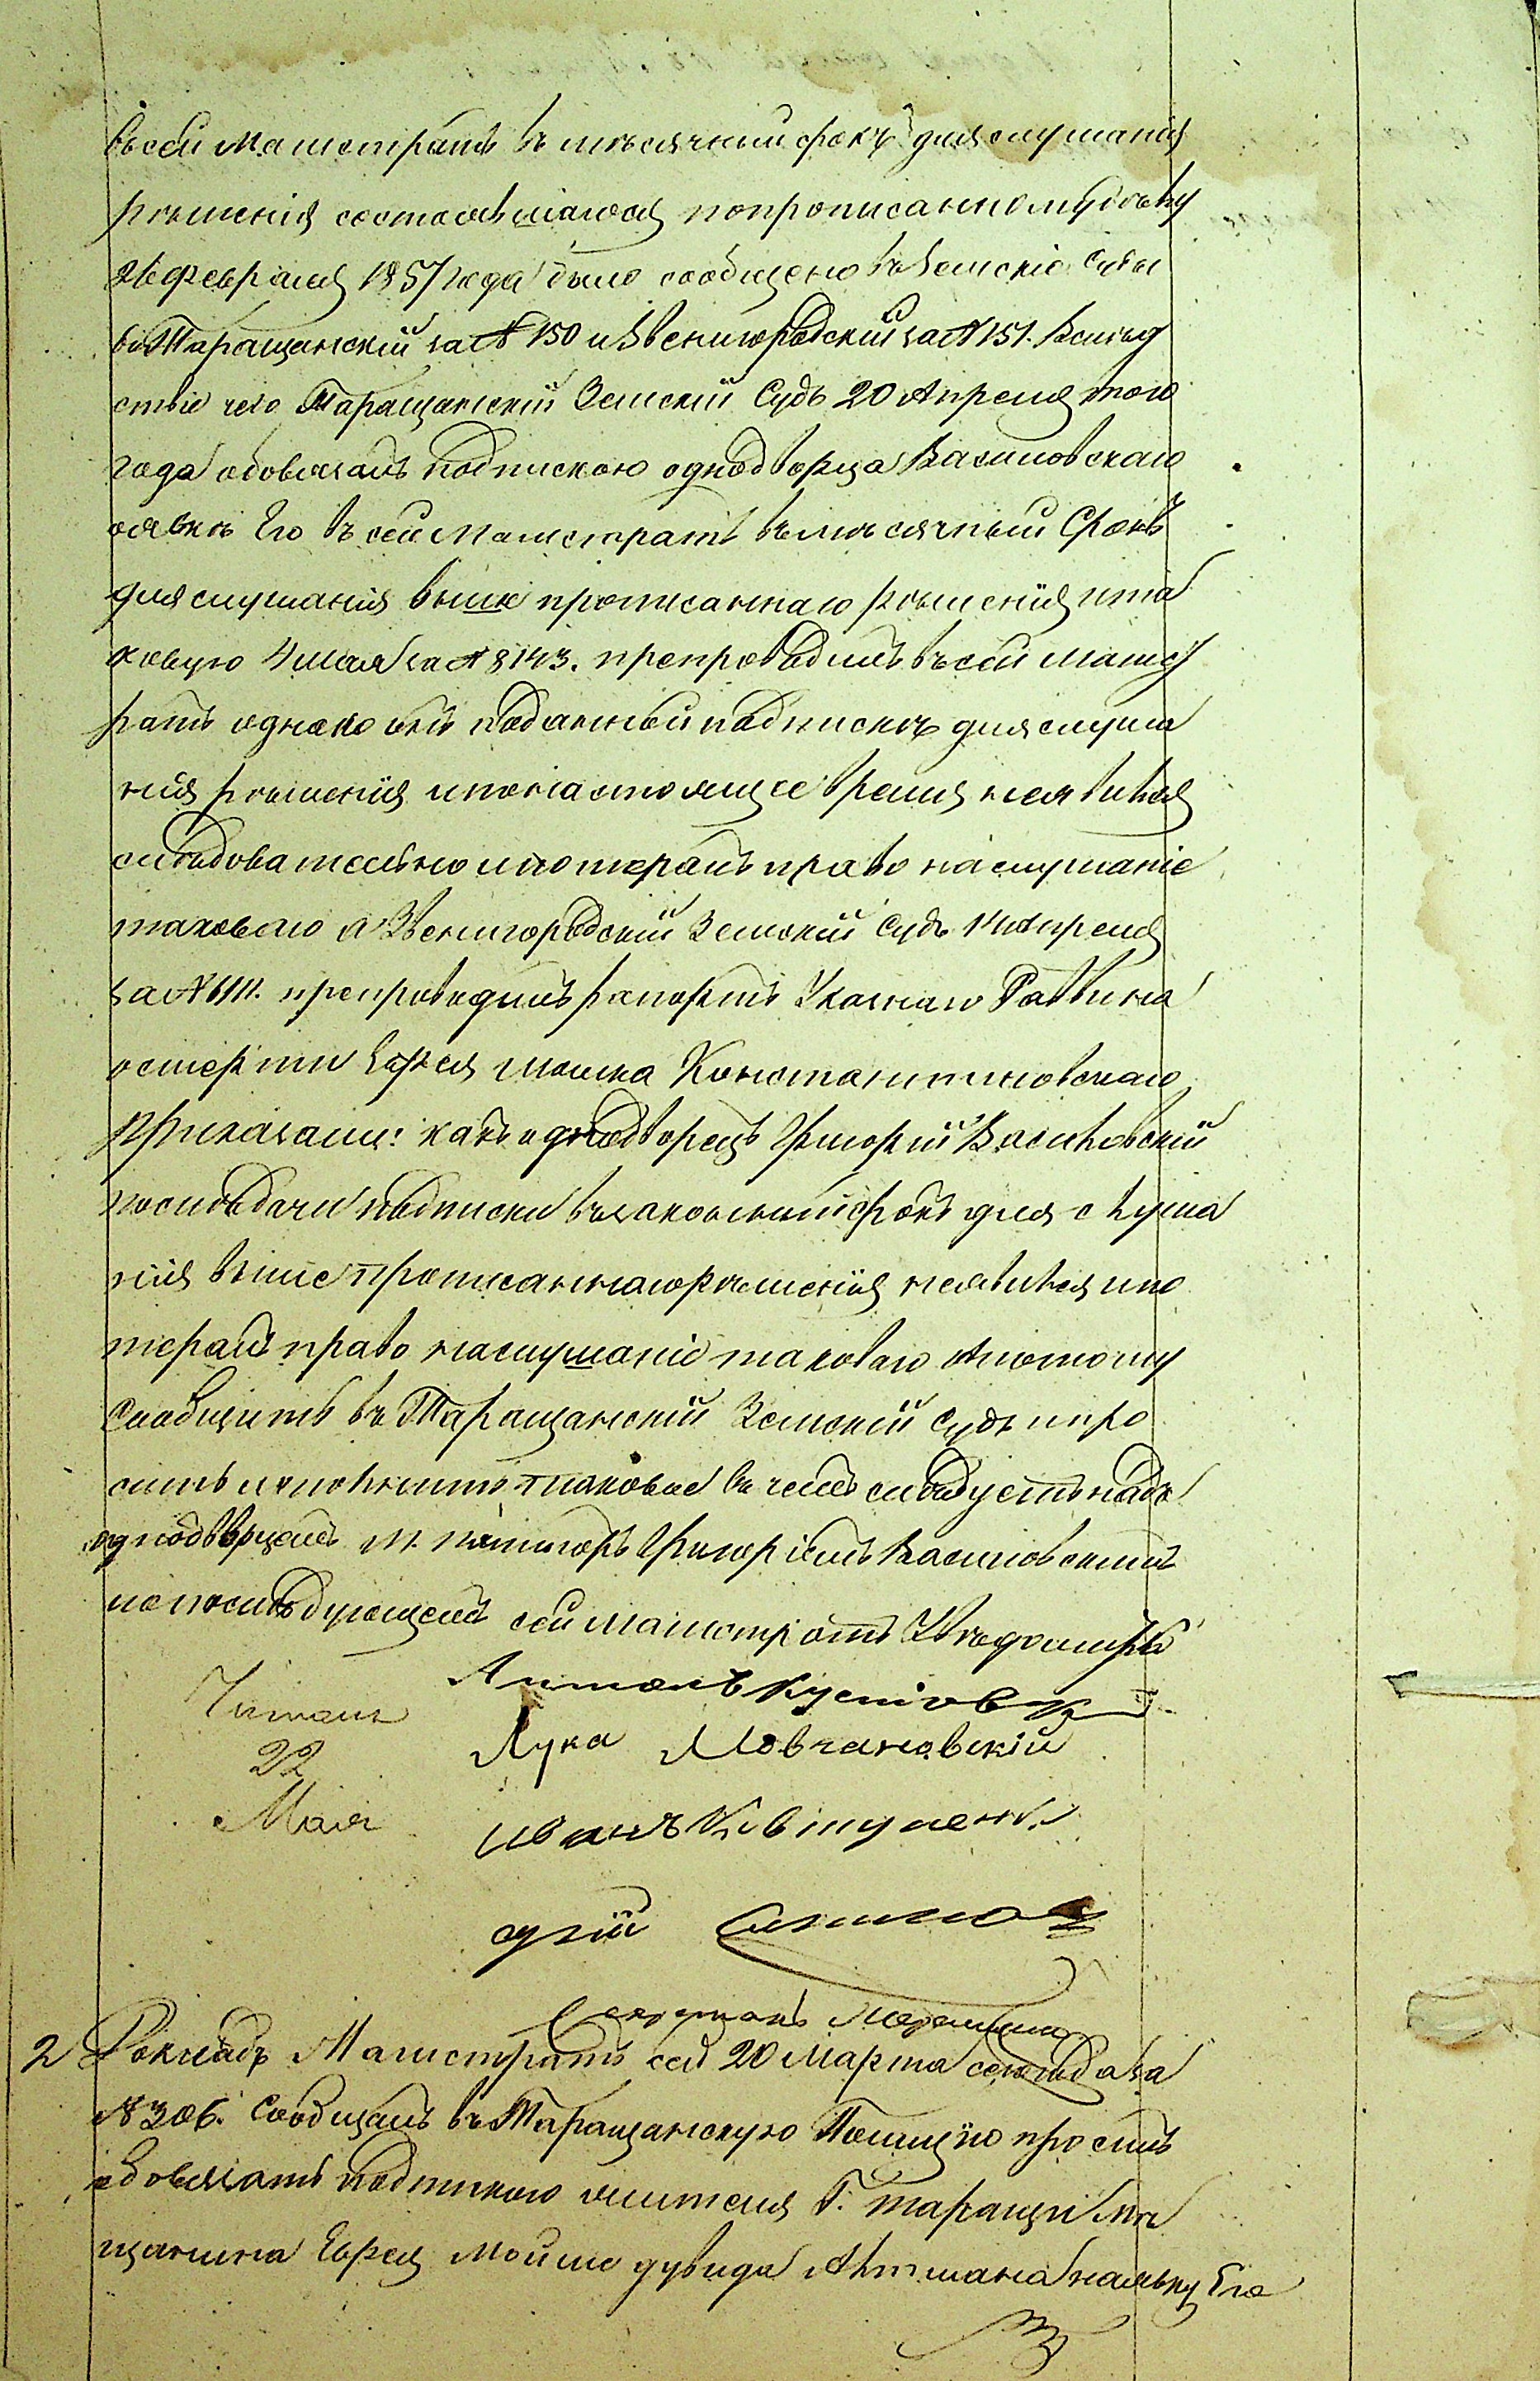 въ сей Магистратъ въ мѣсячный срокъ для слушанія
рѣшенія состоявшагося по прописанному дѣлу
26 февраля 1857 года было сообщено въ Земскіе Суды
въ Таращанскій за № 150 и Звенигородскій за № 151. Вслѣд
ствіе чего Таращанскій Земскій Судъ 20 Апреля того
года обовязалъ подпискою однодворца Васильовскаго
о явкѣ Его въ сей Магистратъ въ мѣсячный Срокъ
для слушанія выше прописаннаго рѣшенія и та
ковую 4 мая за № 8143. препроводилъ въ сей Магист
ратъ однако онъ поданной подпискѣ для слуша
нія рѣшенія и по настоящее время не явился
слѣдовательно и потерялъ право на слушаніе
таковаго а Звенигородскій Земскій Судъ 14 Апреля
за № 6111. препроводилъ рапортъ Указнаго Раввина
о смерти Еврея Мошка Константиновскаго
Приказали: какъ однодворецъ Григорій Васильовскій
после дачи подписки въ законный срокъ для слуша
нія вышепрописаннаго рѣшенія не явился и по
терялъ право на слушаніе таковаго а потому
Сообщить въ Таращанскій Земскій Судъ и про
сить исполнить таковое въ чемъ слѣдуетъ надъ
однодворцемъ М. Григоріемъ Васильовскимъ
и о послѣдующемъ сей Магистратъ Увѣдомить
Читалъ
22
Мая
Лука Мовчановскій
Иванъ Ковтуненко
Секретарь
2 Докладъ Магистратъ сей 20 Марта сего года за
№ 306. Сообщалъ въ Таращанскую Полицію просилъ
обовязать подпискою жителя Г. Таращи мѣ
щанина Еврея Мошко Дувида Альтмана на явку Его